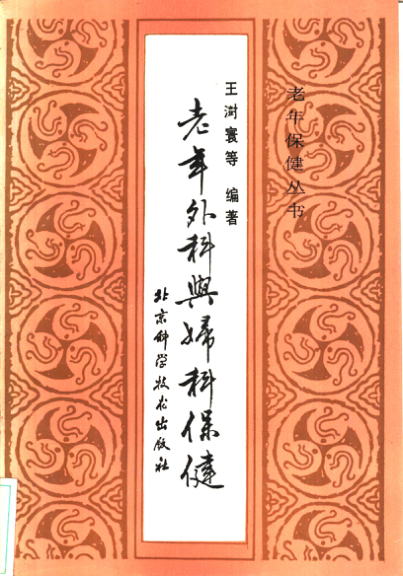 老年保健丛书
王澍寰等 编著
老年外科與婦科保健
北京科学技术出版社